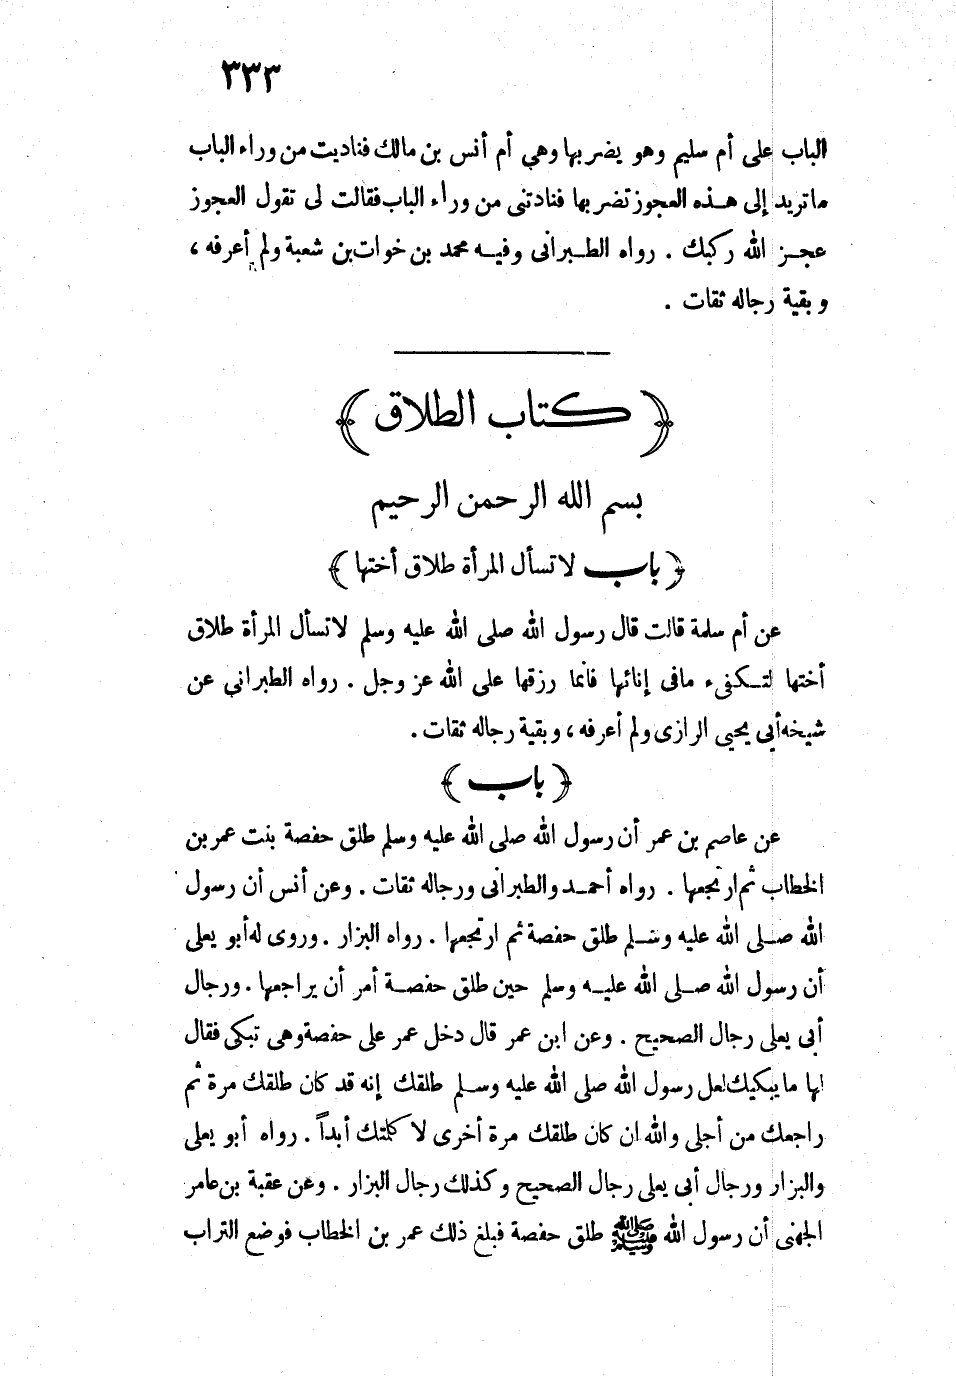 ٣٣٣
الباب على أم سليم وهو يضربها وهي أم أنس بن مالك فناديت من وراء الباب
ماتريد إلى هذه العجوز تضربها فنادتنى من وراء الباب فقالت لى تقول العجوز
عجز الله ركبك . رواه الطبرانى وفيه محمد بن خوات بن شعبة ولم أعرفه ،
وبقية رجاله ثقات .
﴿ كتاب الطلاق ﴾
بسم الله الرحمن الرحيم
﴿ باب لاتسأل المرأة طلاق أختها ﴾
عن أم سلمة قالت قال رسول الله صلى الله عليه وسلم لاتسأل المرأة طلاق
أختها لتكفىء مافى إنائها فانما رزقها على الله عز وجل . رواه الطبرانى عن
شيخه أبى يحيى الرازى ولم أعرفه ، وبقية رجاله ثقات .
﴿ باب ﴾
عن عاصم بن عمر أن رسول الله صلى الله عليه وسلم طلق حفصة بنت عمر بن
الخطاب ثم ارتجعها . رواه أحمد والطبرانى ورجاله ثقات . وعن أنس أن رسول
الله صلى الله عليه وسلم طلق حفصة ثم ارتجعها . رواه البزار . وروى له أبو يعلى
أن رسول الله صلى الله عليه وسلم حين طلق حفصة أمر أن يراجعها . ورجال
أبى يعلى رجال الصحيح . وعن ابن عمر قال دخل عمر على حفصة وهى تبكى فقال
لها مايبكيك لعل رسول الله صلى الله عليه وسلم طلقك إنه قد كان طلقك مرة ثم
راجعك من أجلى والله ان كان طلقك مرة أخرى لا كلمتك أبداً . رواه أبو يعلى
والبزار ورجال أبى يعلى رجال الصحيح وكذلك رجال البزار . وعن عقبة بن عامر
الجهنى أن رسول الله ﷺ طلق حفصة فبلغ ذلك عمر بن الخطاب فوضع التراب